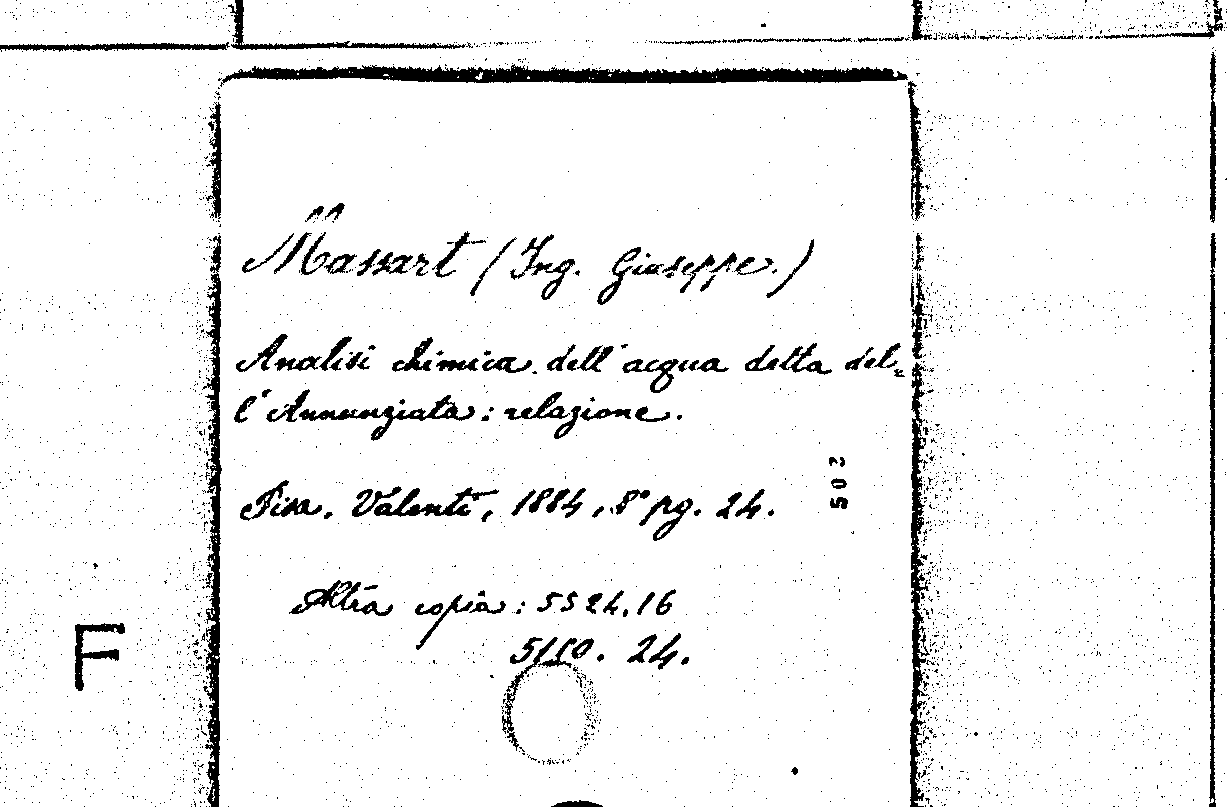 Massart (Ing. Giuseppe.)
Analisi chimica dell'acqua detta del=
l'Annunziata: relazione.
Pisa, Valenti, 1884, 8° pg. 24.
502
Altra copia: 5524.16
5110. 24.
F